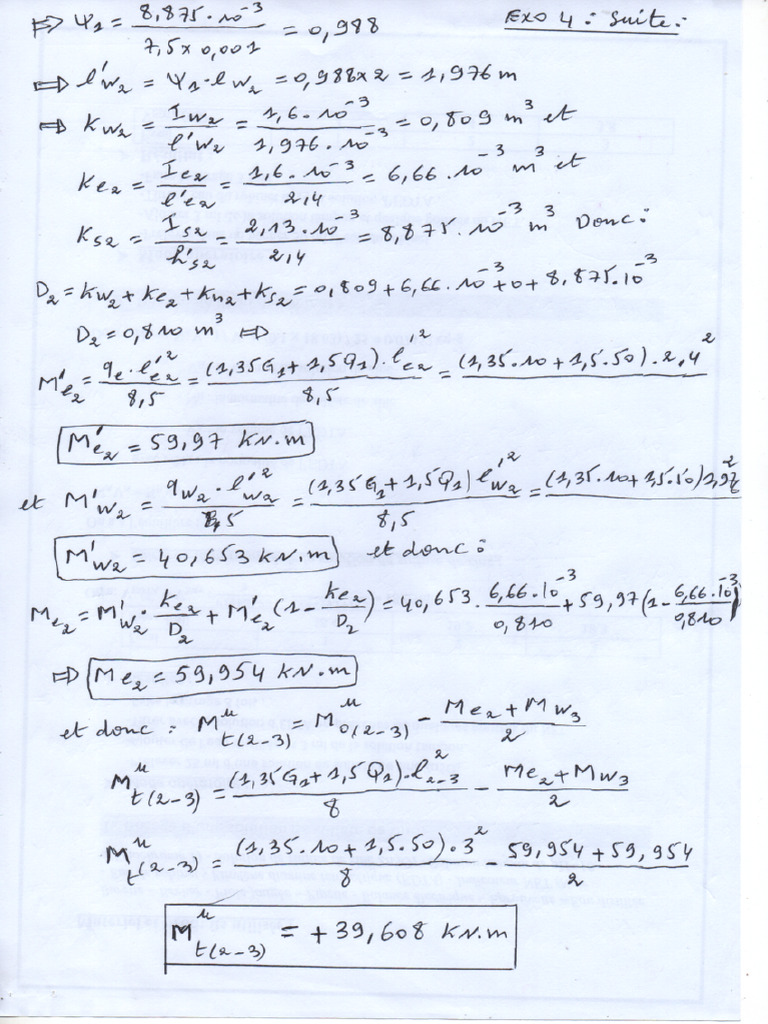 Exo 4 : suite :
⇒ Ψ1 = 8,875·10⁻³ / 7,5 × 0,001 = 0,988
⇒ l'w2 = Ψ1 · lw2 = 0,988 × 2 = 1,976 m
⇒ Kw2 = Iw2 / l'w2 = 1,6·10⁻³ / 1,976·10⁻³ = 0,809 m³ et
Ke2 = Ie2 / l'e2 = 1,6·10⁻³ / 2,4 = 6,66·10⁻³ m³ et
Ks2 = Is2 / h's2 = 2,13·10⁻³ / 2,4 = 8,875·10⁻³ m³ Donc :
D2 = Kw2 + Ke2 + Kn2 + Ks2 = 0,809 + 6,66·10⁻³ + 0 + 8,875·10⁻³
D2 = 0,810 m³ ⇒
M'e2 = qe · l'e2² / 8,5 = (1,35G1 + 1,5Q1) · l'e2² / 8,5 = (1,35·10 + 1,5·50) · 2,4²
M'e2 = 59,97 KN.m
et M'w2 = qw2 · l'w2² / 8,5 = (1,35G1 + 1,5Q1) l'w2² / 8,5 = (1,35·10 + 1,5·50) 1,97²
M'w2 = 40,653 KN.m et donc :
Me2 = M'w2 · Ke2 / D2 + M'e2 (1 - Ke2 / D2) = 40,653 · 6,66·10⁻³ / 0,810 + 59,97 (1 - 6,66·10⁻³ / 0,810)
⇒ Me2 = 59,954 KN.m
et donc : Mᵘt(2-3) = Mᵘ0(2-3) - Me2 + Mw3 / 2
Mᵘt(2-3) = (1,35G1 + 1,5Q1) · l2-3² / 8 - Me2 + Mw3 / 2
Mᵘt(2-3) = (1,35·10 + 1,5·50) · 3² / 8 - 59,954 + 59,954 / 2
Mᵘt(2-3) = + 39,608 KN.m